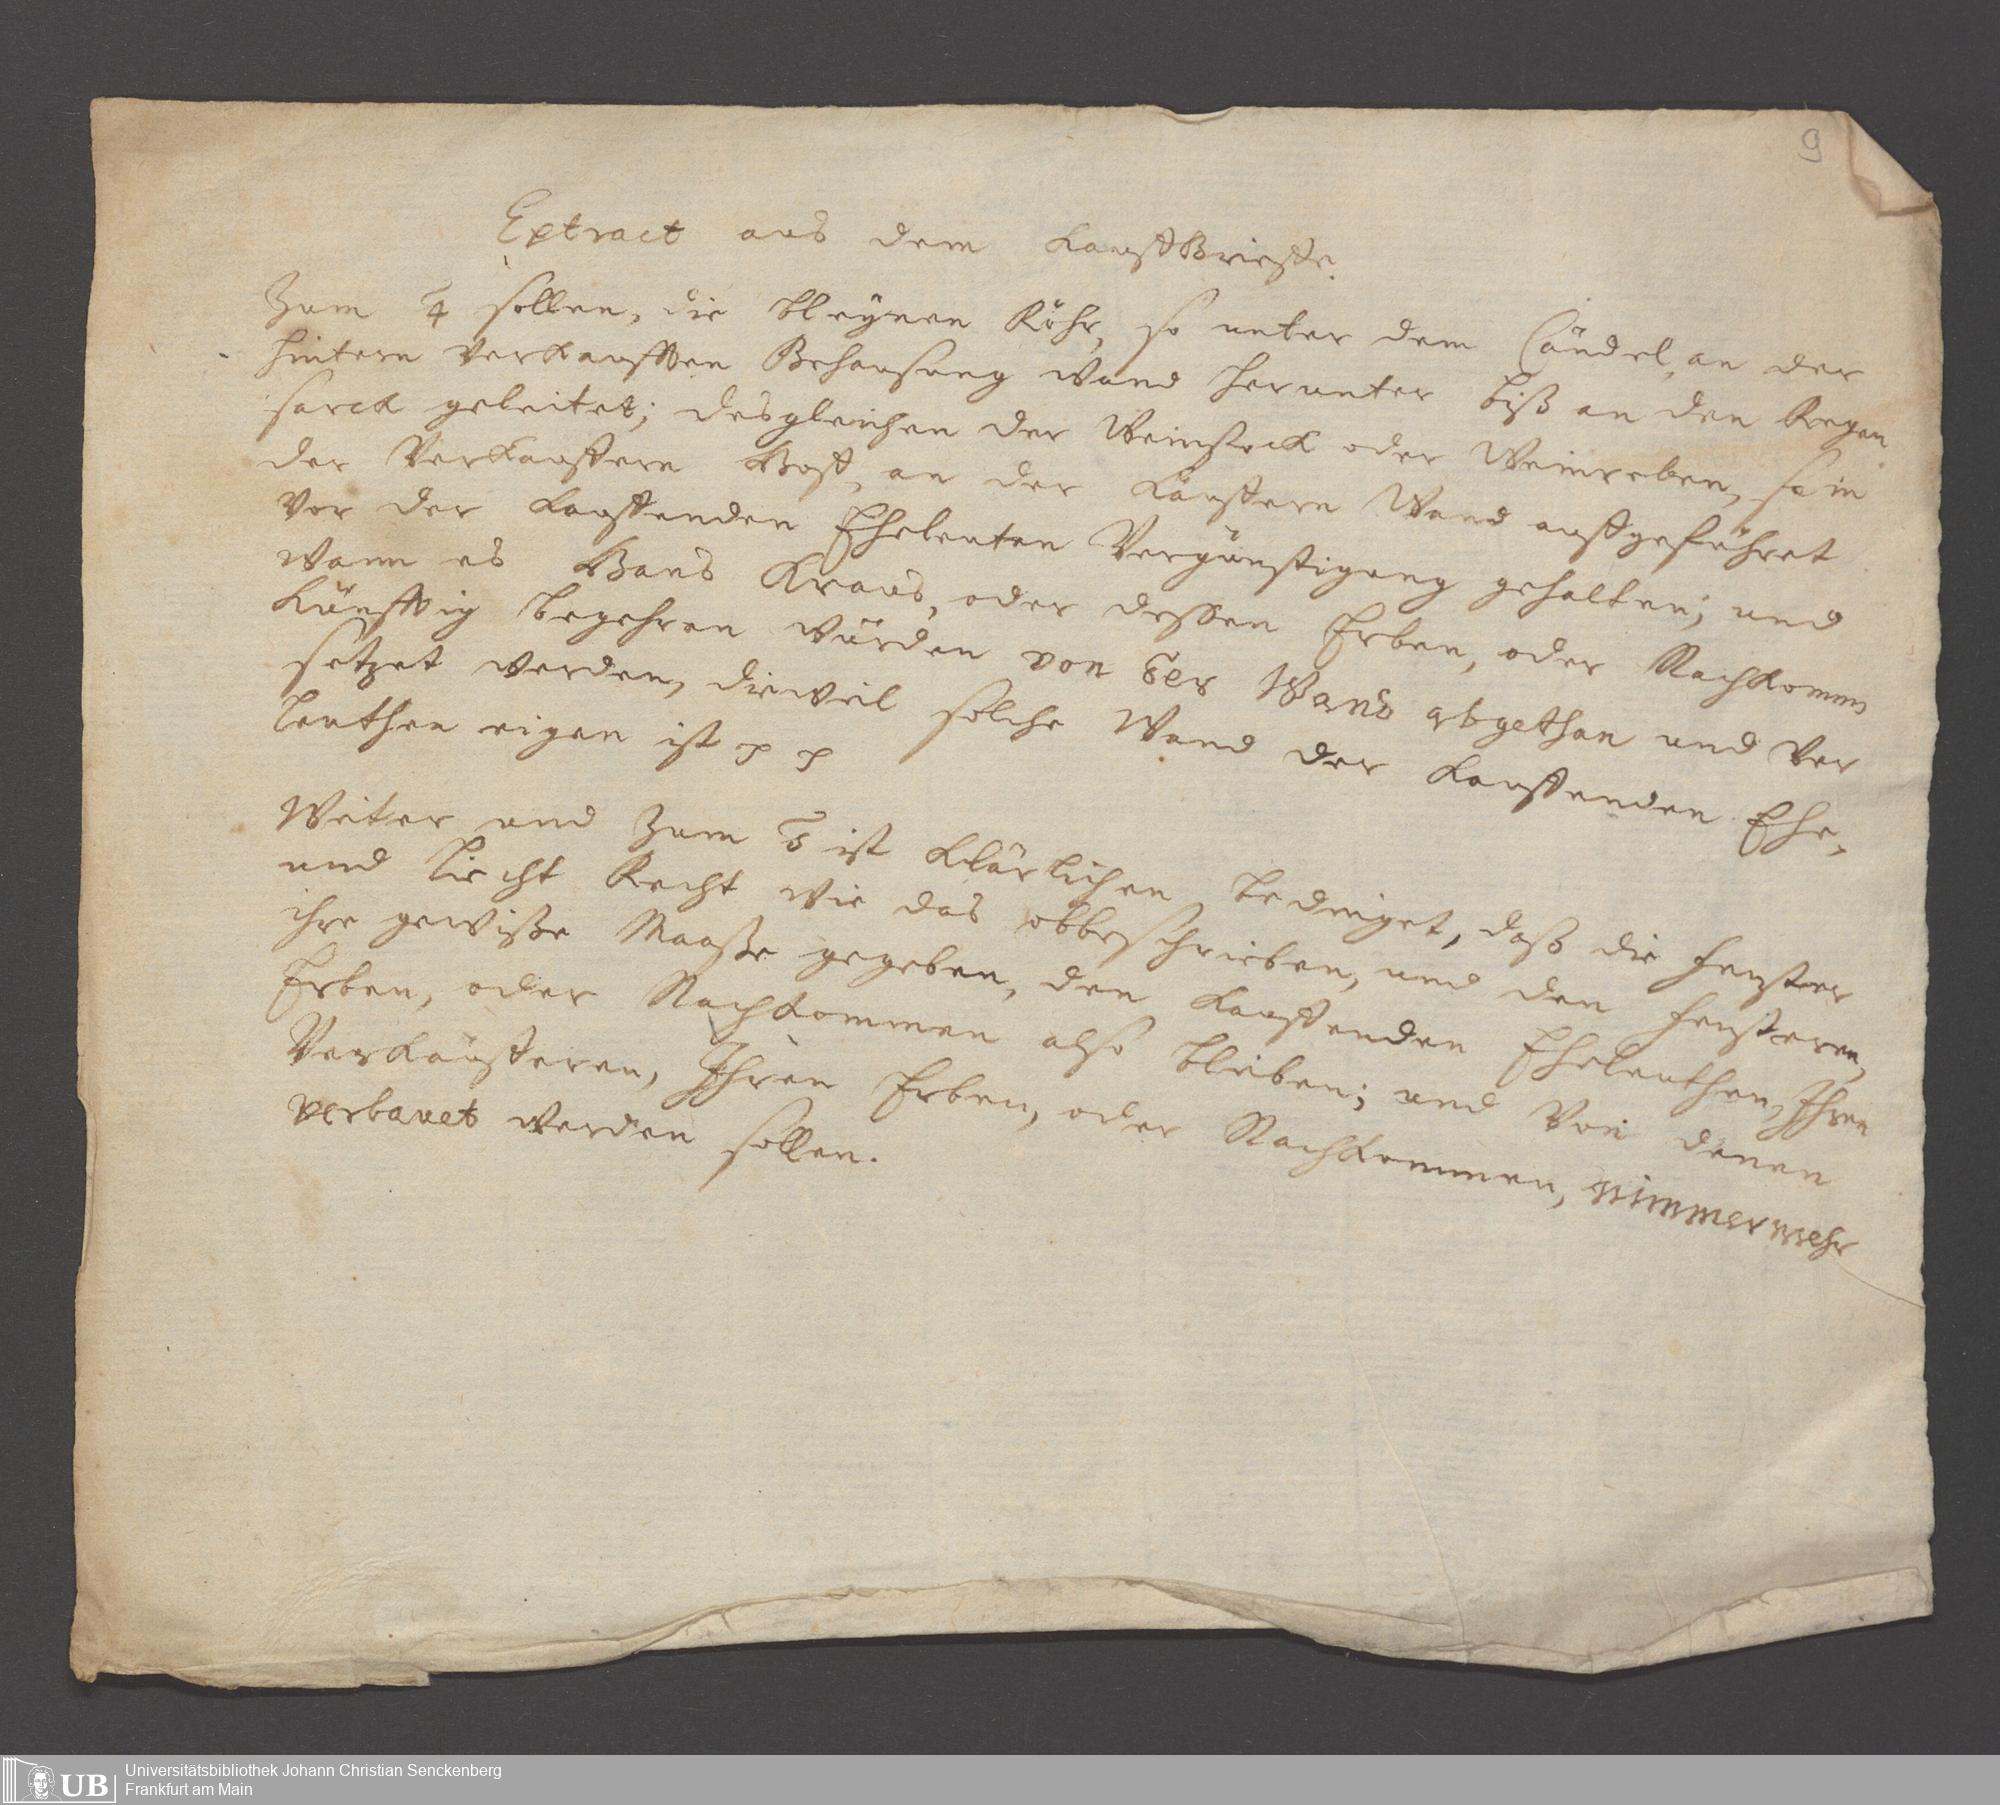 9
Extract aus dem Kauffbrieffe.
Zum 4 sollen, die bleynen Röhr, so unter dem Cändel, an der
hintern verkaufften Behausung wand herunter biß an den Regen
sarck geleitet; desgleichen der Weinstock oder Weinreben, so in
der Verkauffern Hoff, an der Käuffern Wand auffgeführet
vor der Kauffenden Eheleuten Vergünstigung gehalten; und
wann es Hans Kraus, oder dessen Erben, oder Nachkommen
künfftig begehren würden von der Wand abgethan und ver
setzet werden, dieweil solche Wand der Kauffenden Ehe,
leuthen eigen ist p p
Weiter und Zum 5 ist klärlichen bedinget, daß die fenster
und Liecht Recht wie das obbeschrieben, und den fensteren,
ihre gewiße Maaße gegeben, den Kauffenden Eheleuthen, Ihren
Erben, oder Nachkommen also bleiben; und Von denen
Verkäufferen, Ihren Erben, oder Nachkommen, nimmermehr
verbauet werden sollen.
UB
Universitätsbibliothek Johann Christian Senckenberg
Frankfurt am Main